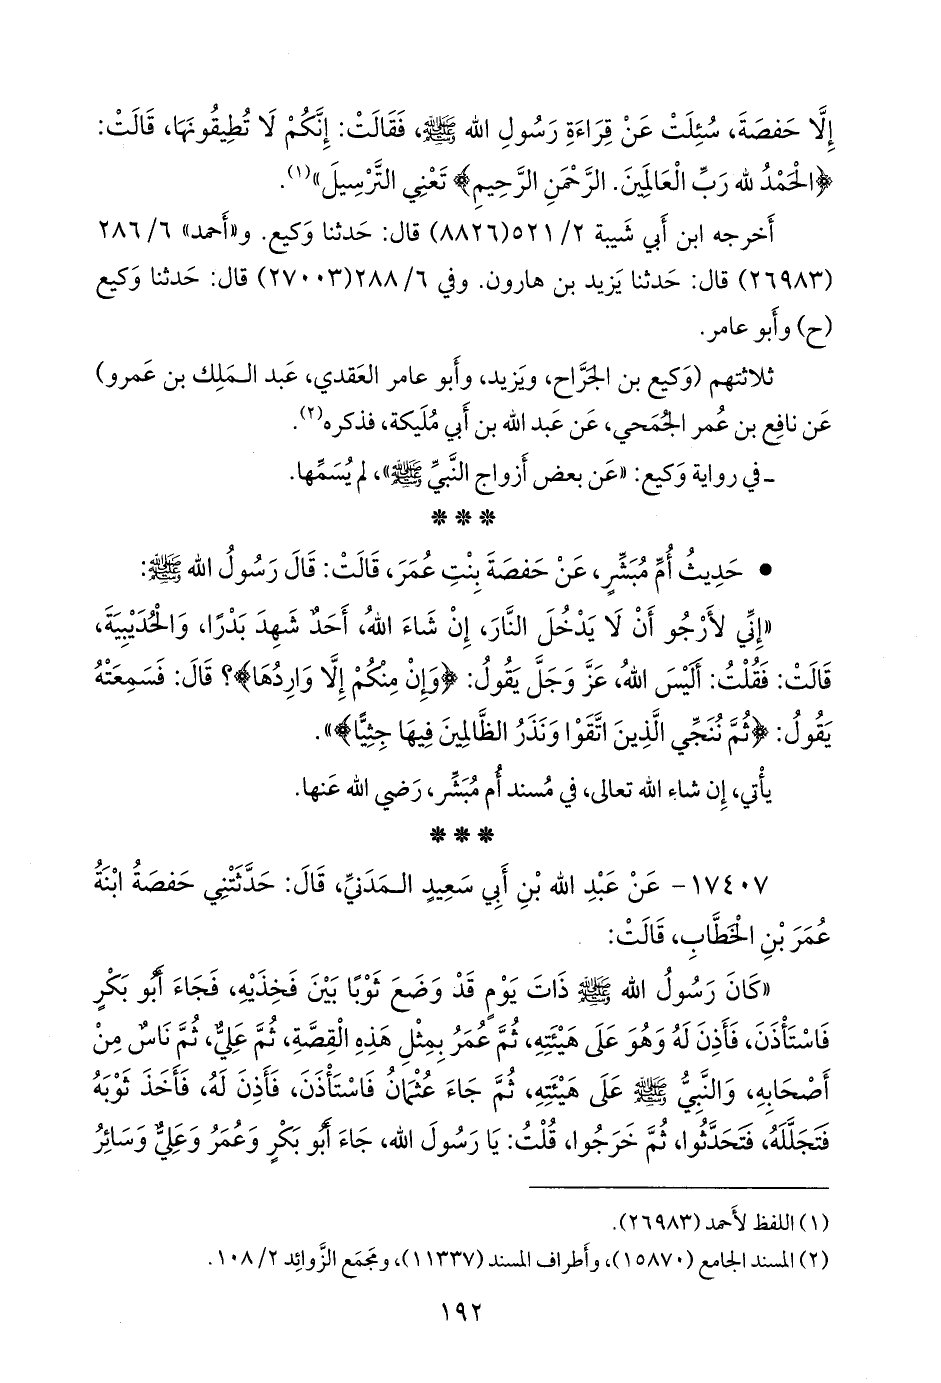 إِلَّا حَفصَةَ، سُئِلَتْ عَنْ قِرَاءَةِ رَسُولِ الله ﷺ، فَقَالَتْ: إِنَّكُمْ لَا تُطِيقُونَهَا، قَالَتْ:
﴿الْحَمْدُ لله رَبِّ الْعَالَمِينَ. الرَّحْمَنِ الرَّحِيمِ﴾ تَعْنِي التَّرْسِيلَ»(١).
أَخرجه ابن أَبي شَيبة ٢/ ٥٢١(٨٨٢٦) قال: حَدثنا وَكيع. و«أَحمد» ٦/ ٢٨٦
(٢٦٩٨٣) قال: حَدثنا يَزيد بن هارون. وفي ٦/ ٢٨٨(٢٧٠٠٣) قال: حَدثنا وَكيع
(ح) وأَبو عامر.
ثلاثتهم (وَكيع بن الجَرَّاح، ويَزيد، وأَبو عامر العَقدي، عَبد الـمَلِك بن عَمرو)
عَن نافِع بن عُمر الجُمَحي، عَن عَبد الله بن أَبي مُلَيكة، فذكره(٢).
ـ في رواية وَكيع: «عَن بعض أَزواج النَّبيِّ ﷺ»، لم يُسَمِّها.
* * *
• حَدِيثُ أُمِّ مُبَشِّرٍ، عَنْ حَفصَةَ بِنْتِ عُمَرَ، قَالَتْ: قَالَ رَسُولُ الله ﷺ:
«إِنِّي لأَرْجُو أَنْ لَا يَدْخُلَ النَّارَ، إِنْ شَاءَ اللهُ، أَحَدٌ شَهِدَ بَدْرًا، وَالْحُدَيْبِيَةَ،
قَالَتْ: فَقُلْتُ: أَلَيْسَ اللهُ، عَزَّ وَجَلَّ يَقُولُ: ﴿وَإِنْ مِنْكُمْ إِلَّا وَارِدُهَا﴾؟ قَالَ: فَسَمِعَتْهُ
يَقُولُ: ﴿ثُمَّ نُنَجِّي الَّذِينَ اتَّقَوْا وَنَذَرُ الظَّالِمِينَ فِيهَا جِثِيًّا﴾».
يأْتي، إِن شاء الله تعالى، في مُسند أُم مُبَشِّر، رَضي الله عَنها.
* * *
١٧٤٠٧- عَنْ عَبْدِ الله بْنِ أَبِي سَعِيدٍ الـمَدَنيِّ، قَالَ: حَدَّثَتْنِي حَفصَةُ ابْنَةُ
عُمَرَ بْنِ الْخَطَّابِ، قَالَتْ:
«كَانَ رَسُولُ الله ﷺ ذَاتَ يَوْمٍ قَدْ وَضَعَ ثَوْبًا بَيْنَ فَخِذَيْهِ، فَجَاءَ أَبُو بَكْرٍ
فَاسْتَأْذَنَ، فَأَذِنَ لَهُ وَهُوَ عَلَى هَيْئَتِهِ، ثُمَّ عُمَرُ بِمِثْلِ هَذِهِ الْقِصَّةِ، ثُمَّ عَلِيٌّ، ثُمَّ نَاسٌ مِنْ
أَصْحَابِهِ، وَالنَّبِيُّ ﷺ عَلَى هَيْئَتِهِ، ثُمَّ جَاءَ عُثْمَانُ فَاسْتَأْذَنَ، فَأَذِنَ لَهُ، فَأَخَذَ ثَوْبَهُ
فَتَجَلَّلَهُ، فَتَحَدَّثُوا، ثُمَّ خَرَجُوا، قُلْتُ: يَا رَسُولَ الله، جَاءَ أَبُو بَكْرٍ وَعُمَرُ وَعَلِيٌّ وَسَائِرُ
(١) اللفظ لأَحمد (٢٦٩٨٣).
(٢) المسند الجامع (١٥٨٧٠)، وأَطراف المسند (١١٣٣٧)، ومَجمَع الزَّوائِد ٢/ ١٠٨.
١٩٢